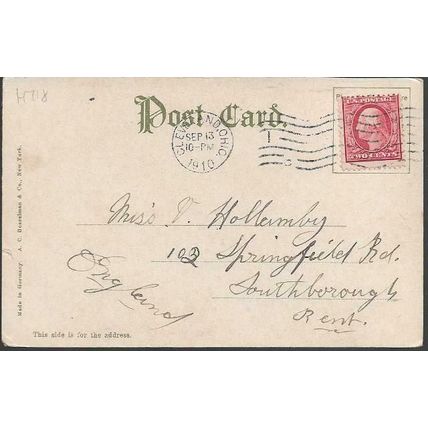 Post Card.
CLEVELAND, OHIO.
SEP 13
10-PM
1910
U.S. POSTAGE
TWO CENTS
Miss V. Hollamby
102 Springfield Rd.
Southborough
Kent.
England
Made in Germany. A. C. Bosselman & Co., New York.
This side is for the address.